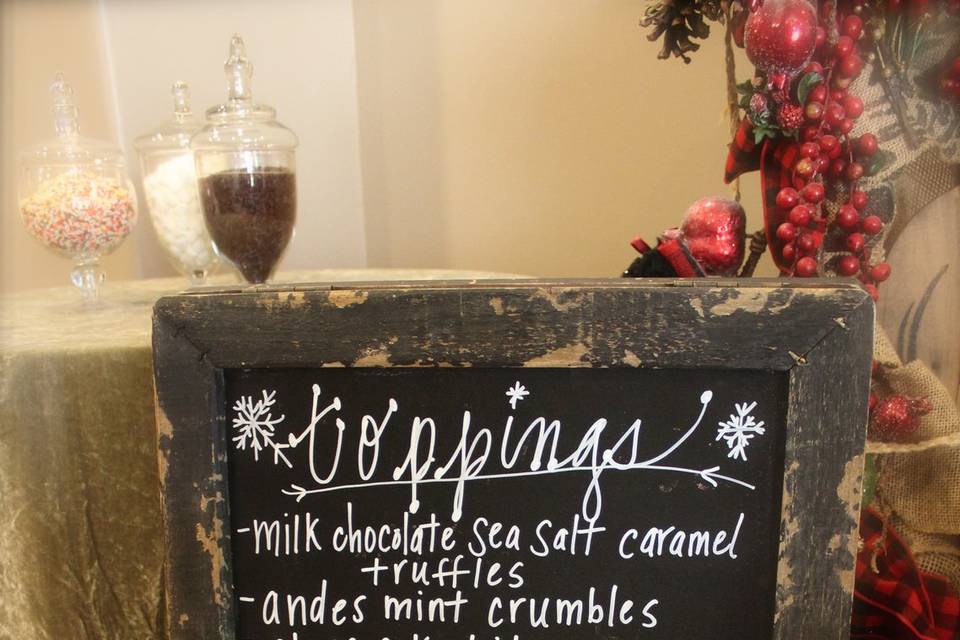 toppings
-milk chocolate sea salt caramel
truffles
-andes mint crumbles